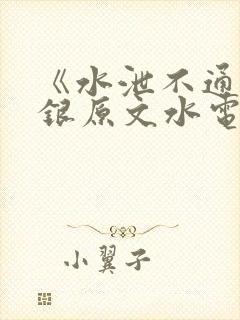 《水泄不通
银原文水电
小翼子